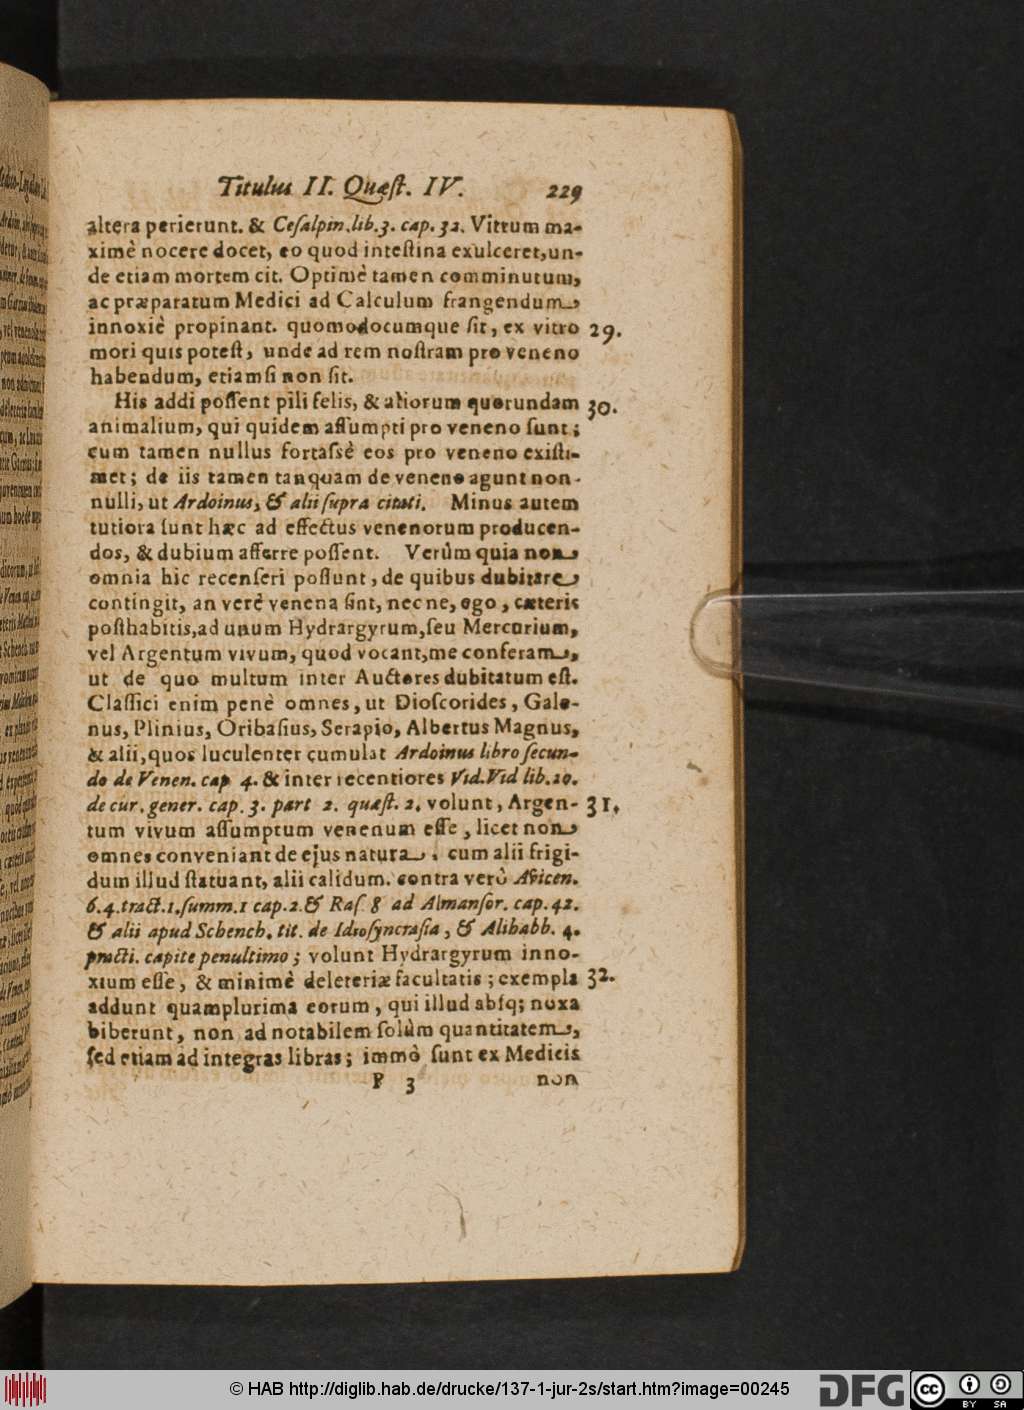 Titulus II. Quæſt. IV. 229
altera perierunt. & Ceſalpin. lib. 3. cap. 32. Vitrum ma-
ximè nocere docet, eo quod inteſtina exulceret, un-
de etiam mortem cit. Optimè tamen comminutum,
ac præparatum Medici ad Calculum frangendum,
innoxiè propinant. quomodocumque ſit, ex vitro 29.
mori quis poteſt, unde ad rem noſtram pro veneno
habendum, etiamſi non ſit.
His addi poſſent pili felis, & aliorum quorundam 30.
animalium, qui quidem aſſumpti pro veneno ſunt;
cum tamen nullus fortaſsè eos pro veneno exiſti-
met; de iis tamen tanquam de veneno agunt non-
nulli, ut Ardoinus, & alii ſupra citati. Minus autem
tutiora ſunt hæc ad effectus venenorum producen-
dos, & dubium afferre poſſent. Verùm quia non
omnia hic recenſeri poſſunt, de quibus dubitare
contingit, an verè venena ſint, nec ne, ego, cæteris
poſthabitis, ad unum Hydrargyrum, ſeu Mercurium,
vel Argentum vivum, quod vocant, me conferam,
ut de quo multum inter Auctores dubitatum eſt.
Claſſici enim penè omnes, ut Dioſcorides, Gale-
nus, Plinius, Oribaſius, Serapio, Albertus Magnus,
& alii, quos luculenter cumulat Ardoinus libro ſecun-
do de Venen. cap 4. & inter recentiores Vid. Vid lib. 10.
de cur. gener. cap. 3. part 2. quæſt. 2. volunt, Argen- 31.
tum vivum aſſumptum venenum eſſe, licet non
omnes conveniant de ejus natura. cum alii frigi-
dum illud ſtatuant, alii calidum. contra verò Avicen.
6. 4. tract. 1. ſumm. 1 cap. 2. & Raſ 8 ad Almanſor. cap. 42.
& alii apud Schench. tit. de Idioſyncraſia, & Alibabb. 4.
practi. capite penultimo; volunt Hydrargyrum inno-
xium eſſe, & minimè deleteriæ facultatis; exempla 32.
addunt quamplurima eorum, qui illud abſq; noxa
biberunt, non ad notabilem ſolùm quantitatem,
ſed etiam ad integras libras; immò ſunt ex Medicis
P 3 non
© HAB http://diglib.hab.de/drucke/137-1-jur-2s/start.htm?image=00245
DFG
cc BY SA